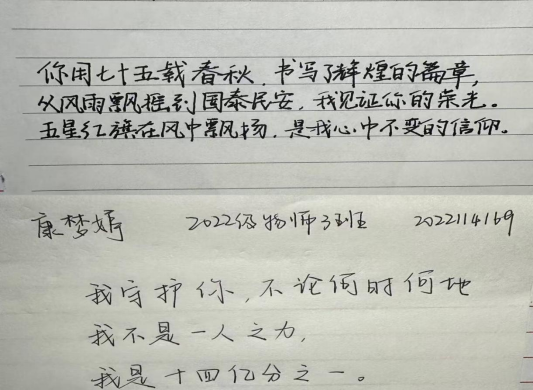 你用七十五载春秋，书写了辉煌的篇章，
从风雨飘摇到国泰民安，我见证你的荣光。
五星红旗在风中飘扬，是我心中不变的信仰。
康梦婷 2022级物师3班 2022114169
我守护你，不论何时何地
我不是一人之力，
我是十四亿分之一。